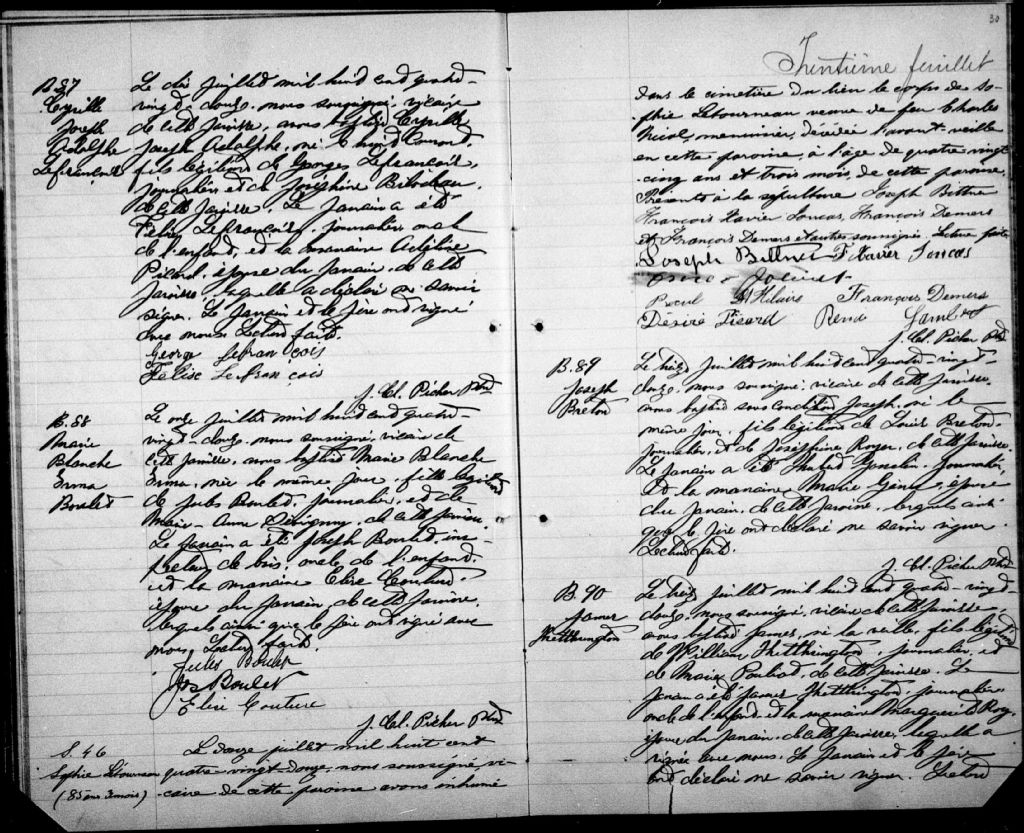 B. 87
Cyrille
Joseph
Adolphe
Lefrançois
Le dix juillet mil huit cent quatre-
vingt douze, nous soussigné, vicaire
de cette paroisse, avons baptisé Cyrille
Joseph Adolphe, né le
fils légitime de Georges Lefrançois,
journalier et de Joséphine Bilodeau,
de cette paroisse. Le parrain a été
Félix Lefrançois, journalier, oncle
de l'enfant, et la marraine Adéline
Picard, épouse du parrain, de cette
paroisse, laquelle a déclaré ne savoir
signer. Le parrain et le père ont signé
avec nous. Lecture faite.
George Lefrançois
Félise Lefrançois
J. Cl. Picher Ptre
B. 88
Marie
Blanche
Erma
Boulet
Le onze juillet mil huit cent quatre-
vingt-douze, nous soussigné, vicaire de
cette paroisse, avons baptisé Marie Blanche
Erma, née le même jour, fille légitime
de Jules Boulet, journalier, et de
Marie-Anne Sévigny, de cette paroisse.
Le parrain a été Joseph Boulet, ins-
pecteur de bois, oncle de l'enfant,
et la marraine Elise Couture,
épouse du parrain, de cette paroisse,
lesquels ainsi que le père ont signé avec
nous. Lecture faite.
Jules Boulet
Jos Boulet
Couture
J. Cl. Picher Ptre
S. 46
Sophie Létourneau
(85 ans 3 mois)
Le douze juillet mil huit cent
quatre-vingt-douze, nous soussigné vi-
caire de cette paroisse avons inhumé
30
Trentième feuillet
dans le cimetière du lieu le corps de So-
phie Létourneau veuve de feu Charles
Nicol, menuisier, décédée l'avant-veille
en cette paroisse, à l'âge de quatre vingt
cinq ans et trois mois, de cette paroisse.
Présents à la sépulture Joseph
François Xavier Loncas, François Demers
et François Demers et autres soussignés. Lecture faite.
Joseph F Xavier Loncas
François Demers
Désiré Picard René Lambert
J. Cl. Picher Ptre
B. 89
Joseph
Breton
Le treize juillet mil huit cent quatre-vingt-
douze, nous soussigné, vicaire de cette paroisse,
avons baptisé sous condition Joseph, né le
même jour, fils légitime de Louis Breton,
journalier, et de Joséphine Royer, de cette paroisse.
Le parrain a été Gosselin, journalier,
et la marraine Marie épouse
du parrain, de cette paroisse, lesquels ainsi
que le père ont déclaré ne savoir signer.
Lecture faite.
J. Cl. Picher Ptre
B. 90
James
Hetthrington
Le treize juillet mil huit cent quatre-vingt-
douze, nous soussigné, vicaire de cette paroisse,
avons baptisé James, né la veille, fils légitime
de William Hetthrington, journalier, et
de Marie Pouliot, de cette paroisse. Le
parrain a été James Hetthrington, journalier
oncle de l'enfant, et la marraine Marguerite Roy,
épouse du parrain, de cette paroisse, laquelle a
signée avec nous. Le parrain et le père
ont déclaré ne savoir signer. Lecture